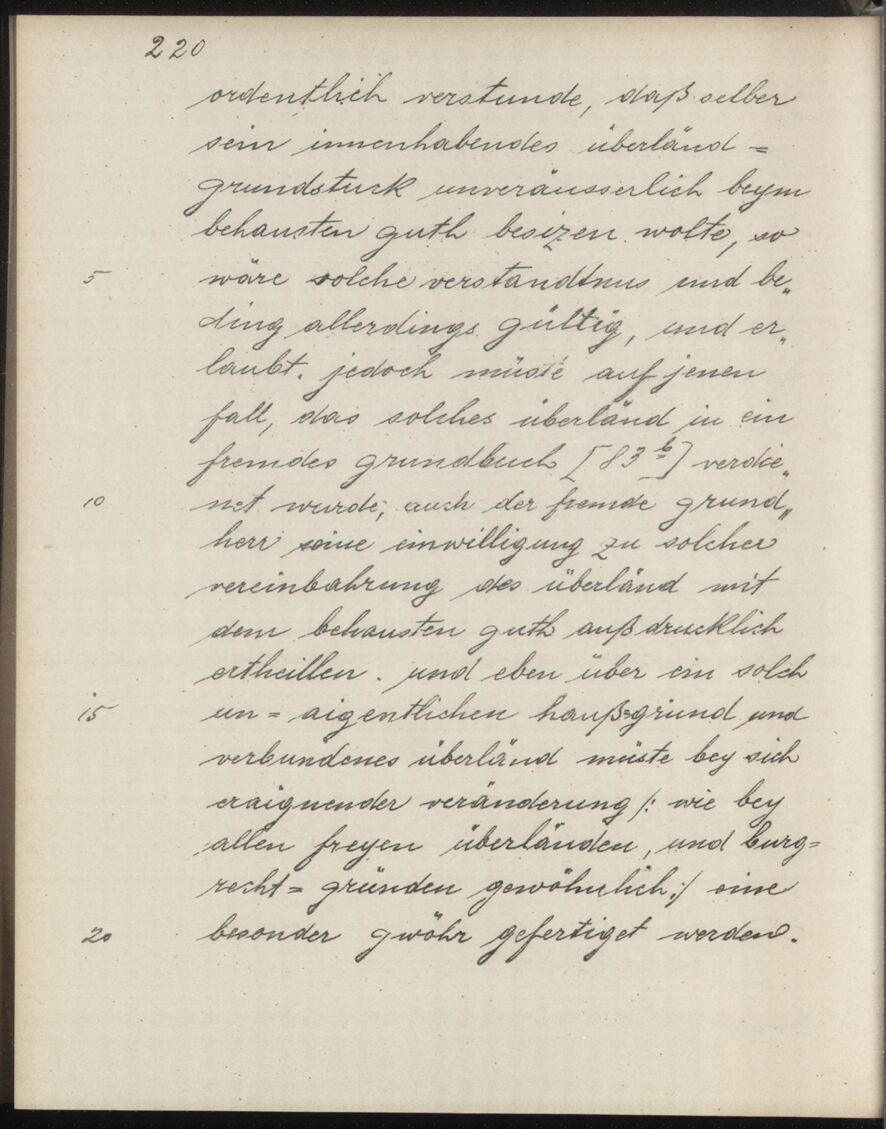 220
ordentlich verstunde, daß selber
sein innenhabendes überländ =
grundstuck unveräusserlich beym
behausten guth besizen wolte, so
5 wäre solche verstandtnus und be„
ding allerdings gültig, und er„
laubt. jedoch müste auf jenen
fall, das solches überländ in ein
fremdes grundbuch [83 b] verdie„
10 net wurde, auch der fremde grund„
herr seine einwilligung zu solcher
vereinbahrung des überländ mit
dem behausten guth außdrucklich
ertheillen. und eben über ein solch
15 un = aigentlichen hauß=grund und
verbundenes überländ müste bey sich
eraignender veränderung /: wie bey
allen freyen überländen, und burg=
recht = gründen gewöhnlich :/ eine
20 besonder gwöhr gefertiget werden.